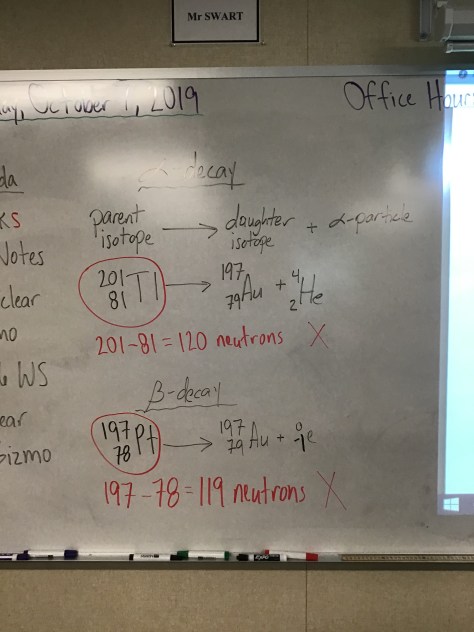 Mr SWART
October 1, 2019
Office Hour
α-decay
parent isotope → daughter isotope + α-particle
201 81 Tl → 197 79 Au + 4 2 He
201-81=120 neutrons X
β-decay
197 78 Pt → 197 79 Au + 0 -1 e
197-78=119 neutrons X
da
ks
Notes
clear
mo
WS
ear
Gizmo